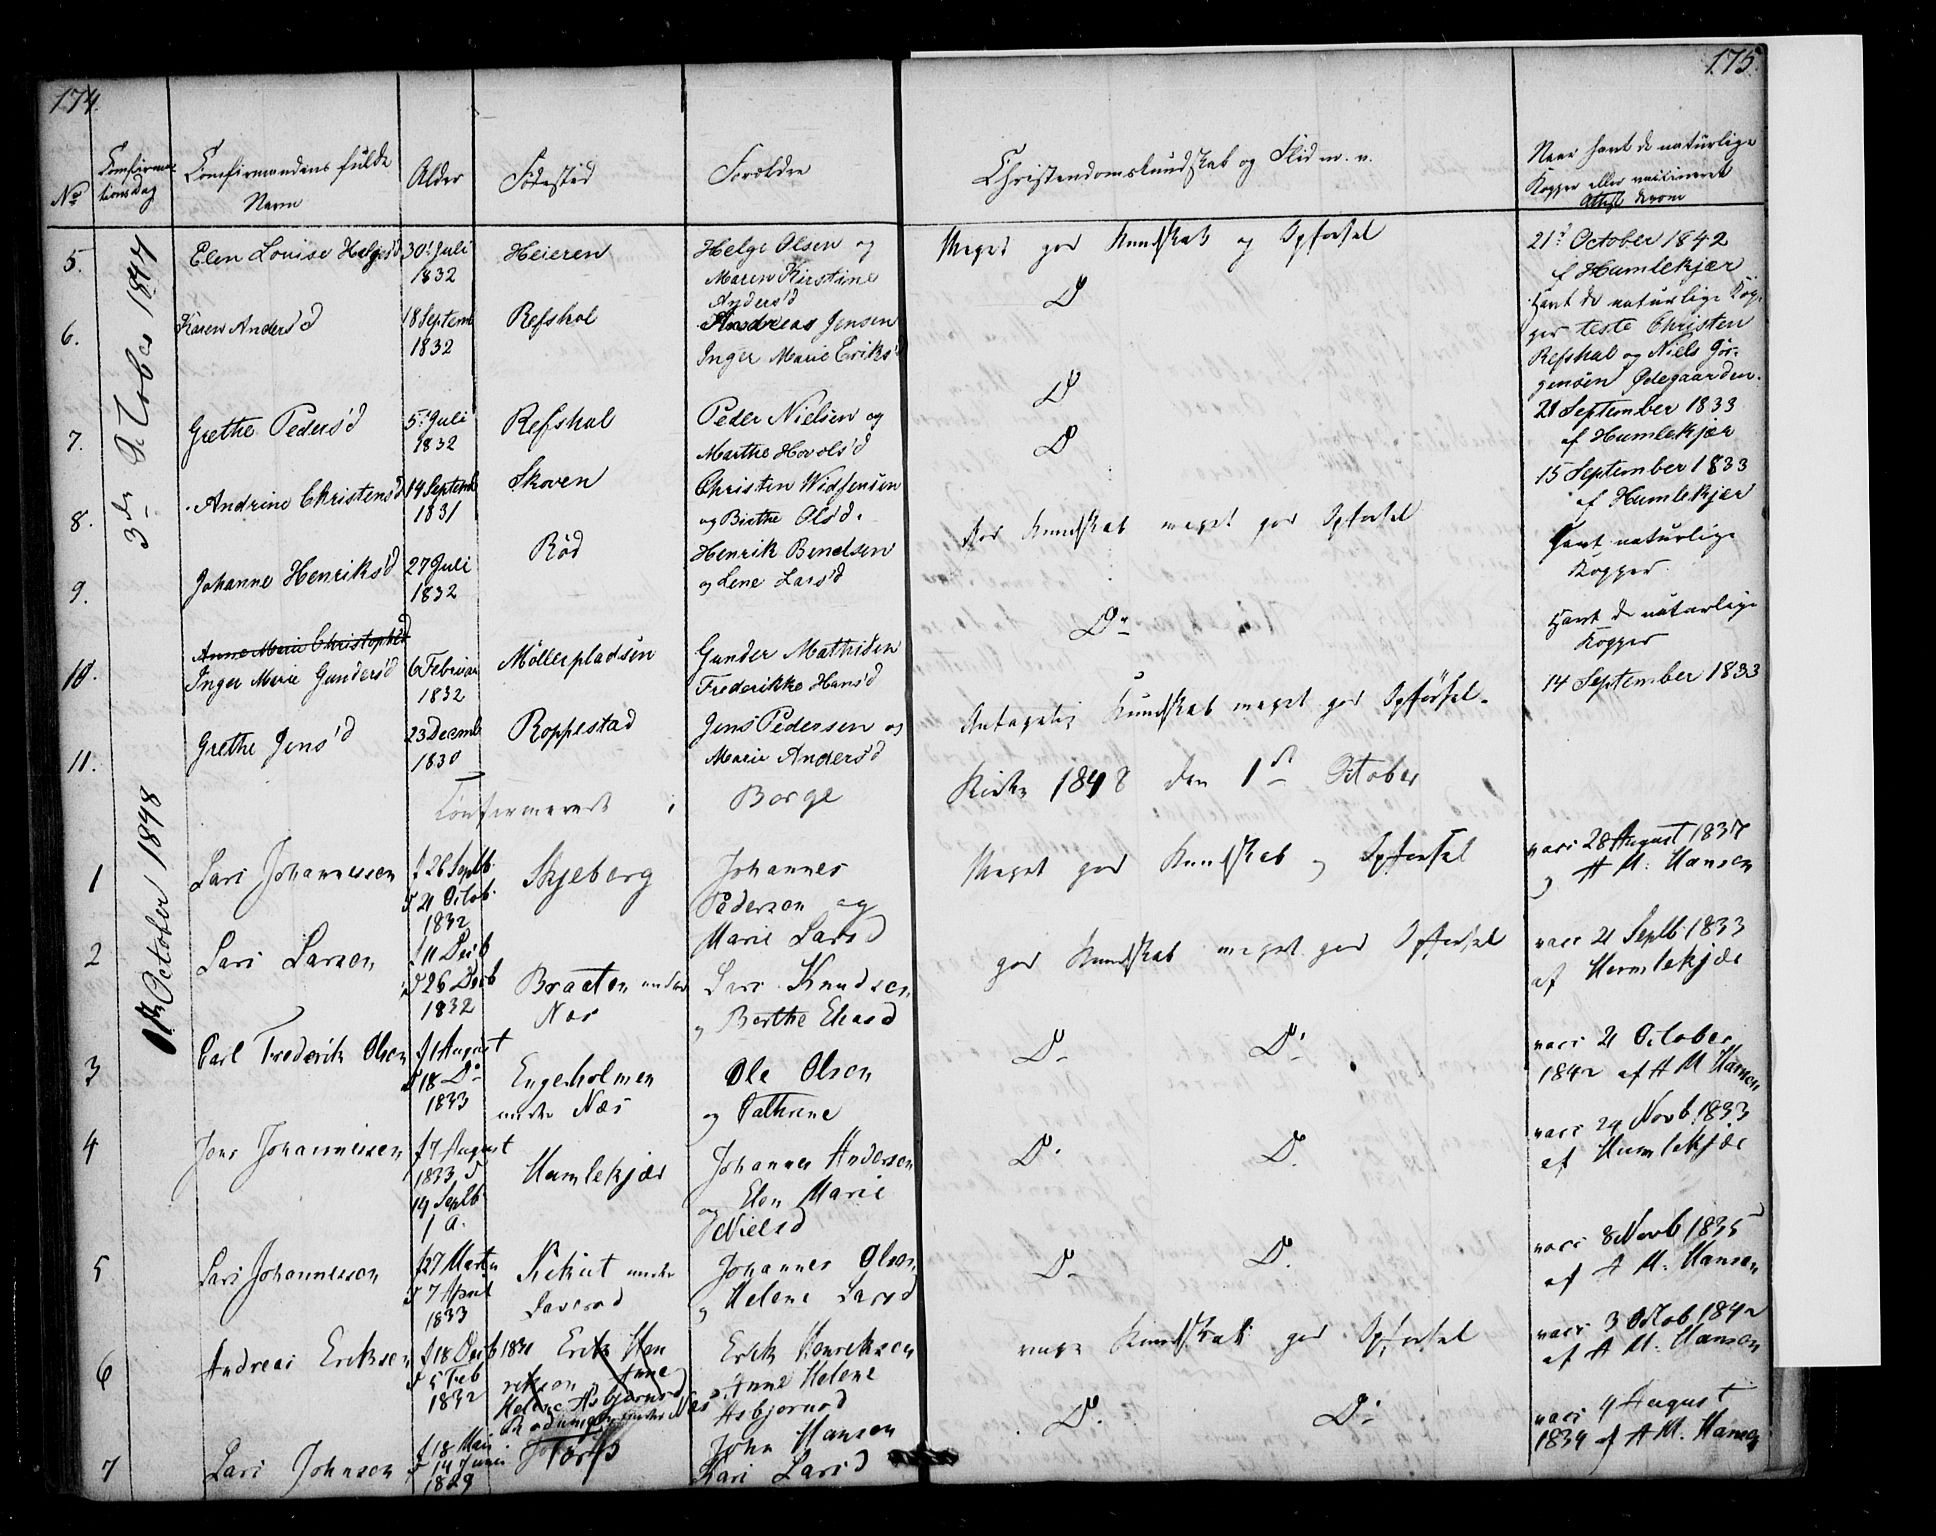 174.
175.
No
Confirma-
tionsdag
Confirmandens fulde
Navn
Alder
Fødested
Forældre
Christendomskundskab og Flid m. v.
Naar havt de naturlige
Kopper eller vaccineret
Attest derom
3de October 1847
5. Elen Louise Helgesd 30t Juli
1832
Heieren
Helge Olsen og
Maren Kirstine
Andersd
Meget god Kundskab og Opførsel
21d October 1842
af Humlekjær
6. Karen Andersd
18 Septemb
1832
Refshal
Andreas Jensen
Inger Marie Eriksd
Do
Havt de naturlige Kop-
per teste Christen
Refshal og Niels Jør-
gensen Ødegaarden.
7. Grethe Pedersd
5t Juli
1832
Refshal
Peder Nielsen og
Marthe Hovolsd
Do
21 September 1833
af Humlekjær
8. Andrine Christensd
14 Septemb
1831
Skoven
Christen
og Birthe Olsd.
Do
15 September 1833
af Humlekjær
9. Johanne Henriksd
27 Juli
1832
Rød
Henrik Bendsen
og Lene Larsd
God Kundskab meget god Opførsel
Havt naturlige
Kopper
10. Anne Marie Christophersd
Inger Marie Gundersd
6 Februar
1832
Møllerpladsen
Gunder Mathisen
Frederikke Hansd
Do
Havt de naturlige
Kopper
11. Grethe Jensd
23 Decemb
1830
Roppestad
Jens Pedersen og
Marie Andersd
Antagelig Kundskab meget god Opførsel.
14 September 1833
Confirmerede i Borge Kirke 1848 den 1st October
1st October 1848
1 Lars Johannessen
f 26 Septb
d 21 Octob
1832
Skjeberg
Johannes
Pedersen og
Marie Larsd
Meget god Kundskab og Opførsel
vacc 28 August 1837
af A M. Hansen
2 Lars Larsen
f 11 Decb
d 26 Decb
1832
Braaten under
Næs
Lars Knudsen
og Berthe Eliasd
god Kundskab meget god Opførsel
vacc 21 Septb 1833
af Humlekjær
3 Carl Frederik Olsen
f 1 August
d 18 Do
1833
Engeholmen
under Næs
Ole Olsen
og Cathrine
Do Do
vacc 21 October
1842 af A M Hansen
4 Jens Johannessen
f 7 August
1833 d
14 Septb
s. A.
Humlekjær
Johannes Andersen
og Elen Marie
Nielsd
Do Do
vacc 24 Novb 1833
af Humlekjær
5 Lars Johannessen
f 27 Marts
d 7 April
1833
Kikut under
Johannes Olsen
og Helene Larsd
Do Do
vacc 8 Novb 1835
af A M. Hansen
6 Andreas Eriksen
f 18 Decb 1831
d 5 Feb
1832
Erik Hen
riksen Anne
Helene Asbjørnsd
under Næs
Erik Henriksen
Anne Helene
Asbjørnsd
Kundskab god Opførsel
vacc 3 Octob 1842
af A M. Hansen
7 Lars Johnsen
f 18 Mai
d 14 Juni
1829
Torp
John Hansen
Kari Larsd
Do Do
vacc 4 August
1834 af A M. Hansen